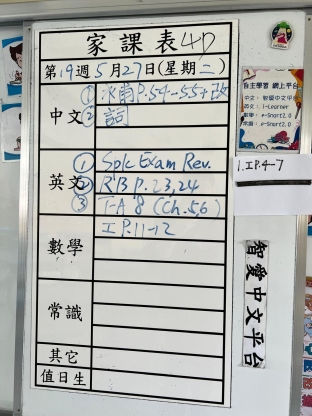 家課表 4D
第19週5月27日(星期二)
中文
① 氷雨P.54-55+改
② 詞
英文
① Splc Exam Rev.
② RB P.23,24
③ T-A 8 (Ch.5,6)
數學
工P.11-12
常識
其它
值日生
自主學習 網上平台
中文:智愛中文平台
英文:i-Learner
數學:e-Smart2.0
常識:e-Smart2.0
1.工P.4-7
智愛中文平台